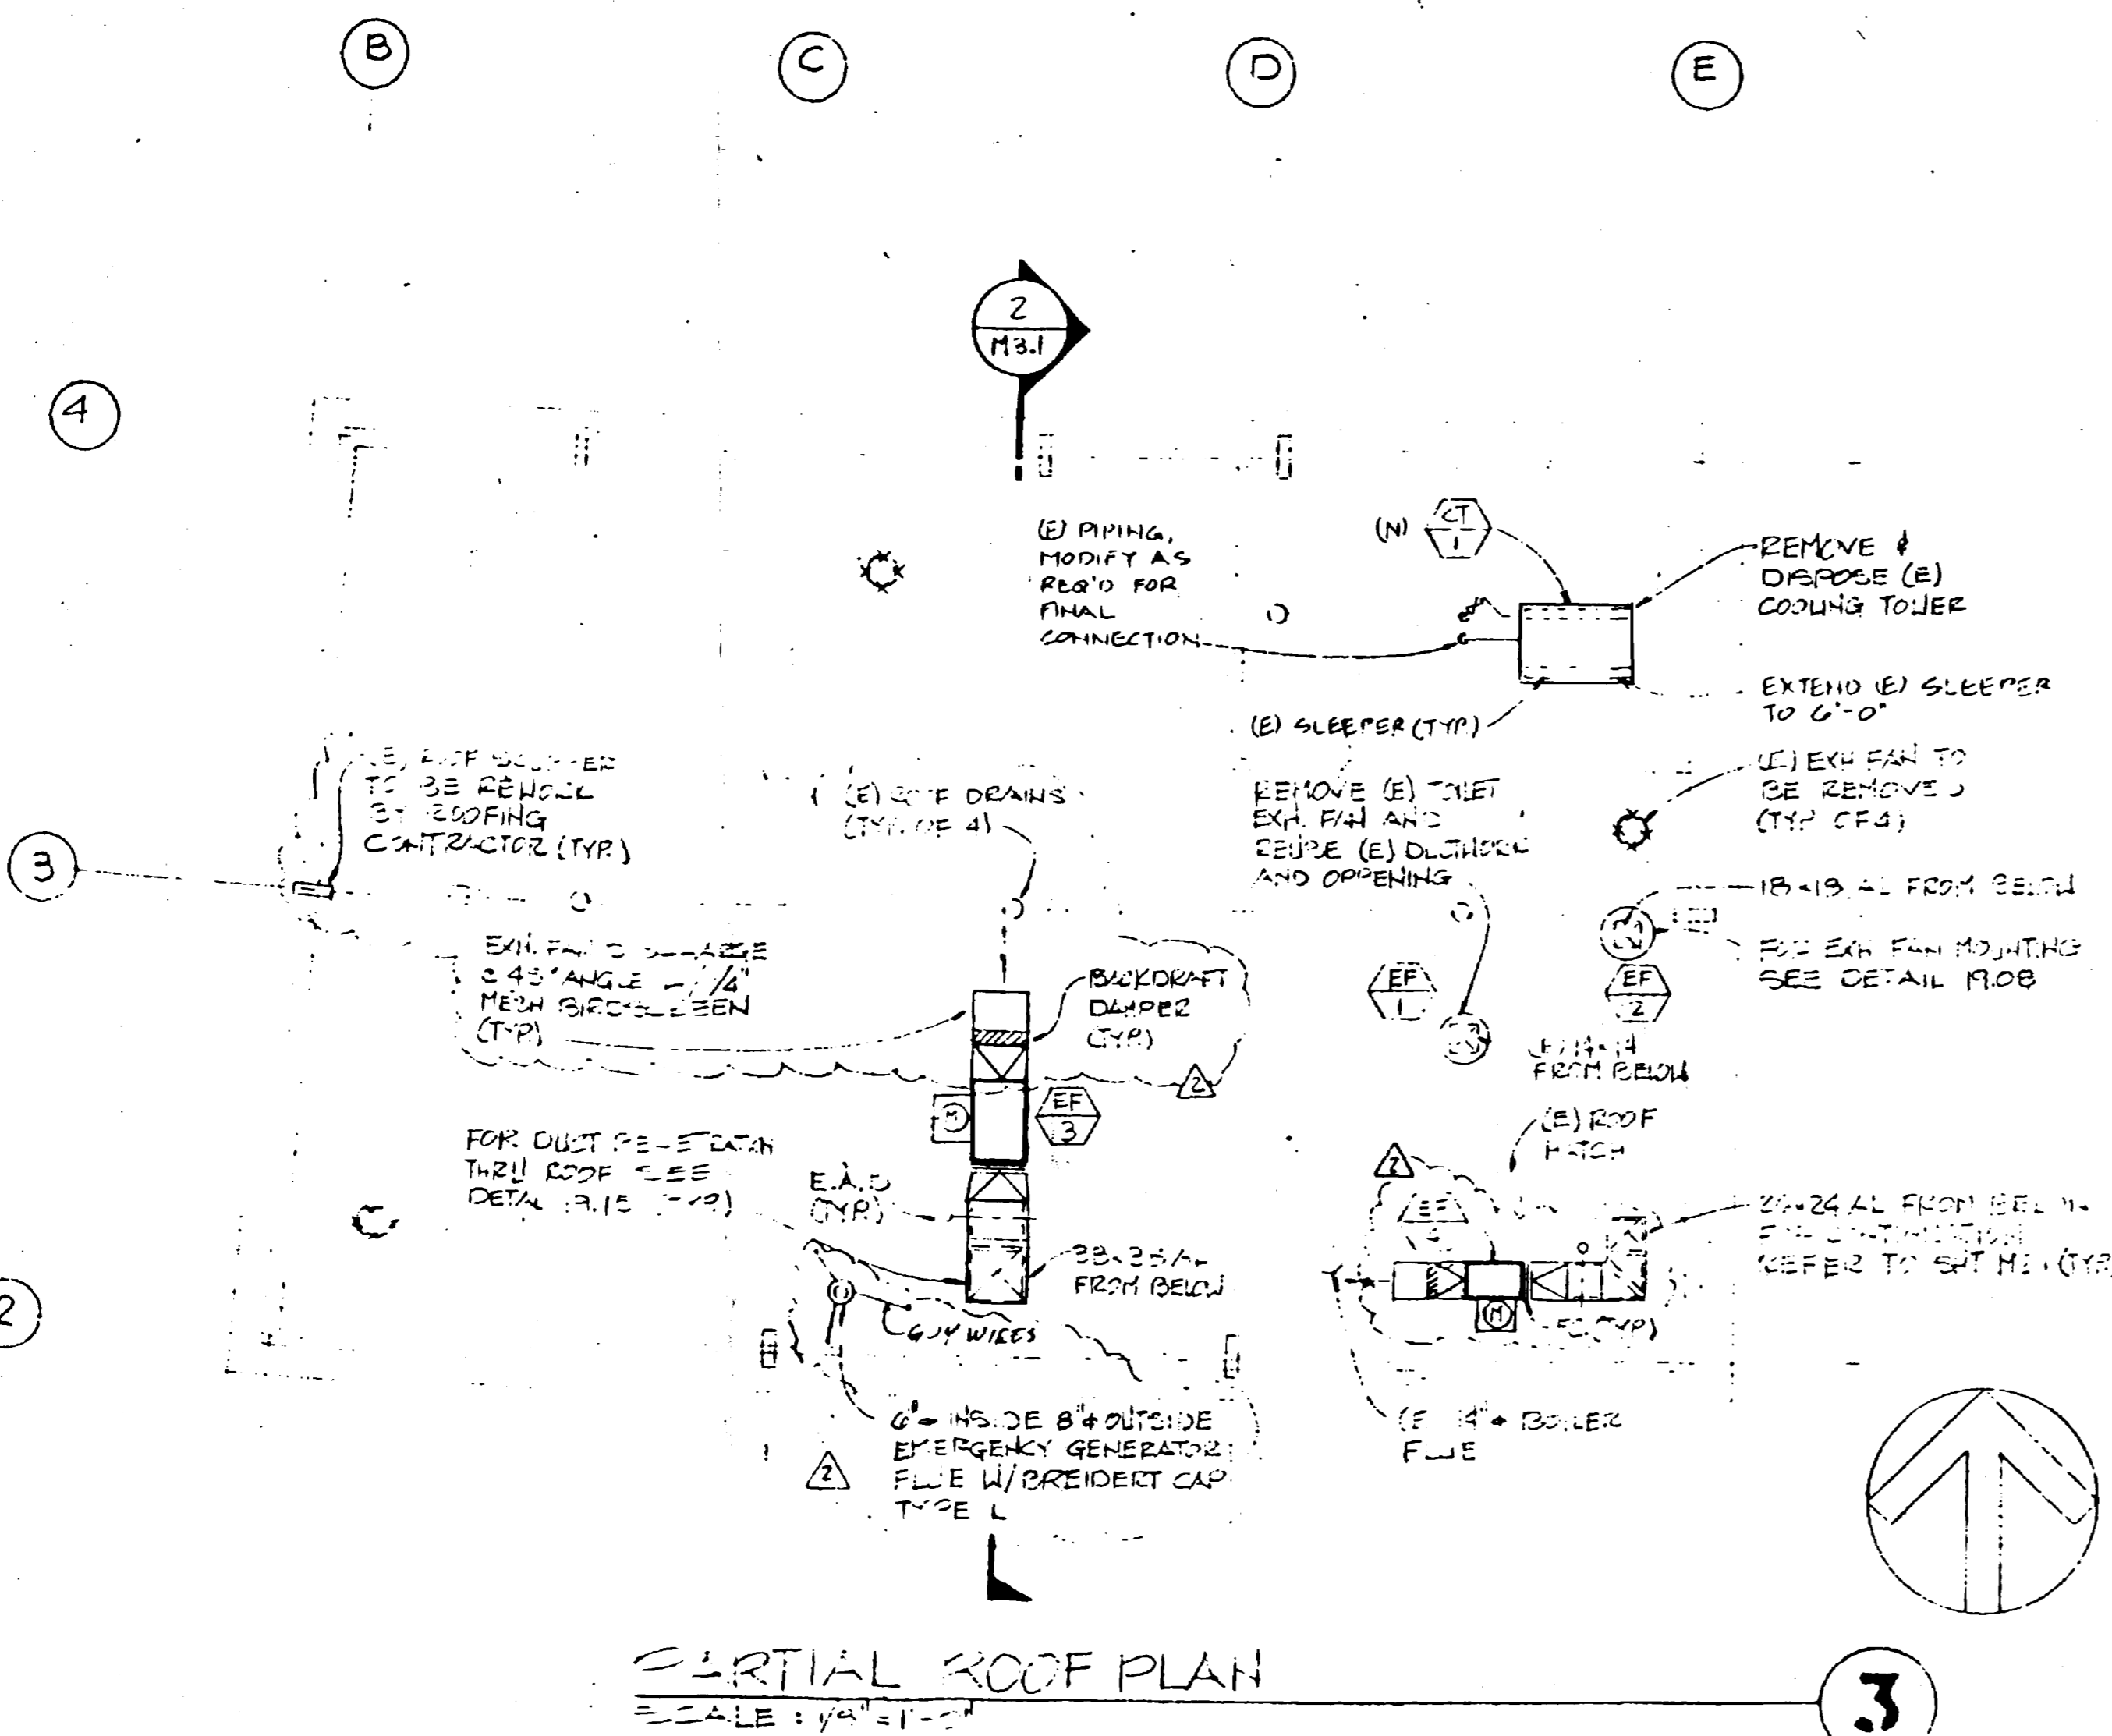 B
C
D
E
2
M3.1
4
(E) PIPING,
MODIFY AS
REQ'D FOR
FINAL
CONNECTION
(N)
CT
1
REMOVE &
DISPOSE (E)
COOLING TOWER
EXTEND (E) SLEEPER
TO 6'-0"
(E) SLEEPER (TYP.)
(E) ROOF SCUPPER
TO BE REWORK
BY ROOFING
CONTRACTOR (TYP.)
(E) ROOF DRAINS
(TYP. OF 4)
REMOVE (E) TOILET
EXH. FAN AND
REUSE (E) DUCTWORK
AND OPPENING
(E) EXH FAN TO
BE REMOVED
(TYP OF 4)
3
18x18 AL FROM BELOW
FOR EXH FAN MOUNTING
SEE DETAIL 19.08
EXH. FAN DISCHARGE
@ 45° ANGLE 1/4"
MESH BIRDSCREEN
(TYP.)
BACKDRAFT
DAMPER
(TYP.)
2
EF
1
EF
2
(E) 14x14
FROM BELOW
M
EF
3
FOR DUCT PENETRATION
THRU ROOF SEE
DETAIL 19.15 (TYP.)
E.A.D
(TYP.)
(E) ROOF
HATCH
2
EF
FROM BELOW
GUY WIRES
24 AL FROM BELOW
REFER TO SHT (TYP
M
F.C. (TYP.)
2
6"ø INSIDE 8"ø OUTSIDE
EMERGENCY GENERATOR
FLUE W/ BREIDERT CAP
TYPE L
2
(E) 14"ø BOILER
FLUE
PARTIAL ROOF PLAN
SCALE : 1/8" = 1'-0"
3